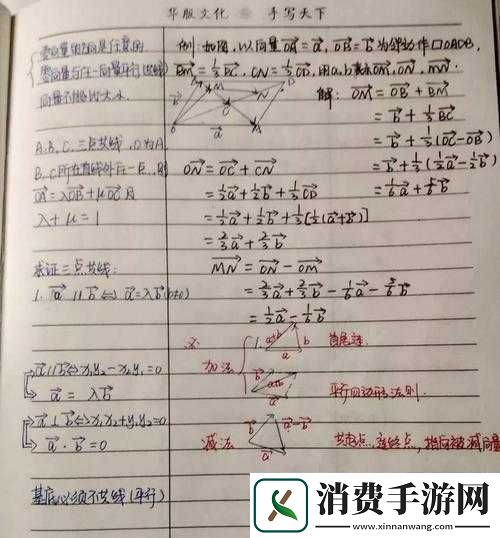 华版文化 手写天下
零向量的方向是任意的
零向量与任一向量平行(共线)
向量不能比大小
A、B、C、三点共线，O为A、
B、C所在直线外任一点，则
OA = λOB + μOC 且
λ + μ = 1
求证三点共线：
1. a // b ⇔ a = λb (b≠0)
a // b ⇔ x₁y₂ - x₂y₁ = 0
a = λb
a ⊥ b ⇔ x₁x₂ + y₁y₂ = 0
a · b = 0
基底必须不共线(平行)
例：如图，以向量OA = a，OB = b为邻边作▱OADB，
BM = 1/3 BC，CN = 1/3 CD，用a,b表示OM,ON,MN.
解：OM = OB + BM
= b + 1/3 BC
= b + 1/3 (OC - OB)
= b + 1/3 (1/2 a - 1/2 b)
= 1/6 a + 5/6 b
ON = OC + CN
= 1/2 a + 1/2 b + 1/3 CD
= 1/2 a + 1/2 b + 1/3 [1/2 (a + b)]
= 2/3 a + 2/3 b
MN = ON - OM
= 2/3 a + 2/3 b - 1/6 a - 5/6 b
= 1/2 a - 1/6 b
加法
1. a+b b a 首尾连
b a+b a 平行四边形法则.
减法 b a-b a 共起点，连终点，指向被减向量
消费手游网
www.xinnanwang.com